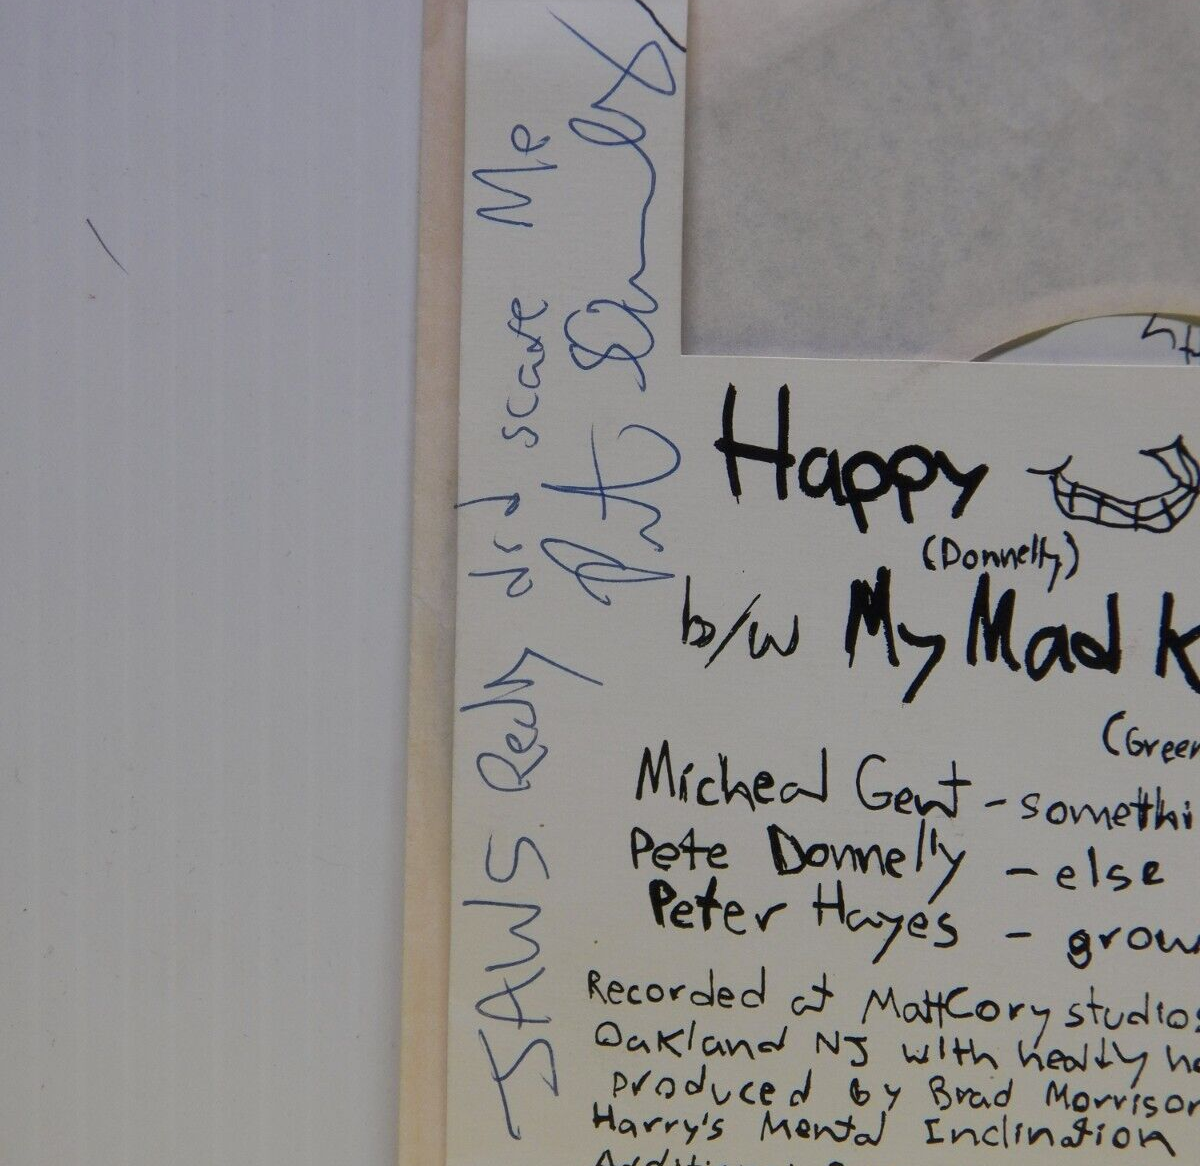 JAWS Really did scare Me
Happy
(Donnelly)
b/w My Mad K
(Green
Micheal Gent - somethi
Pete Donnelly - else
Peter Hayes - grow
Recorded at MattCory studios
Oakland NJ with heavy he
produced by Brad Morrison
Harry's Mental Inclination